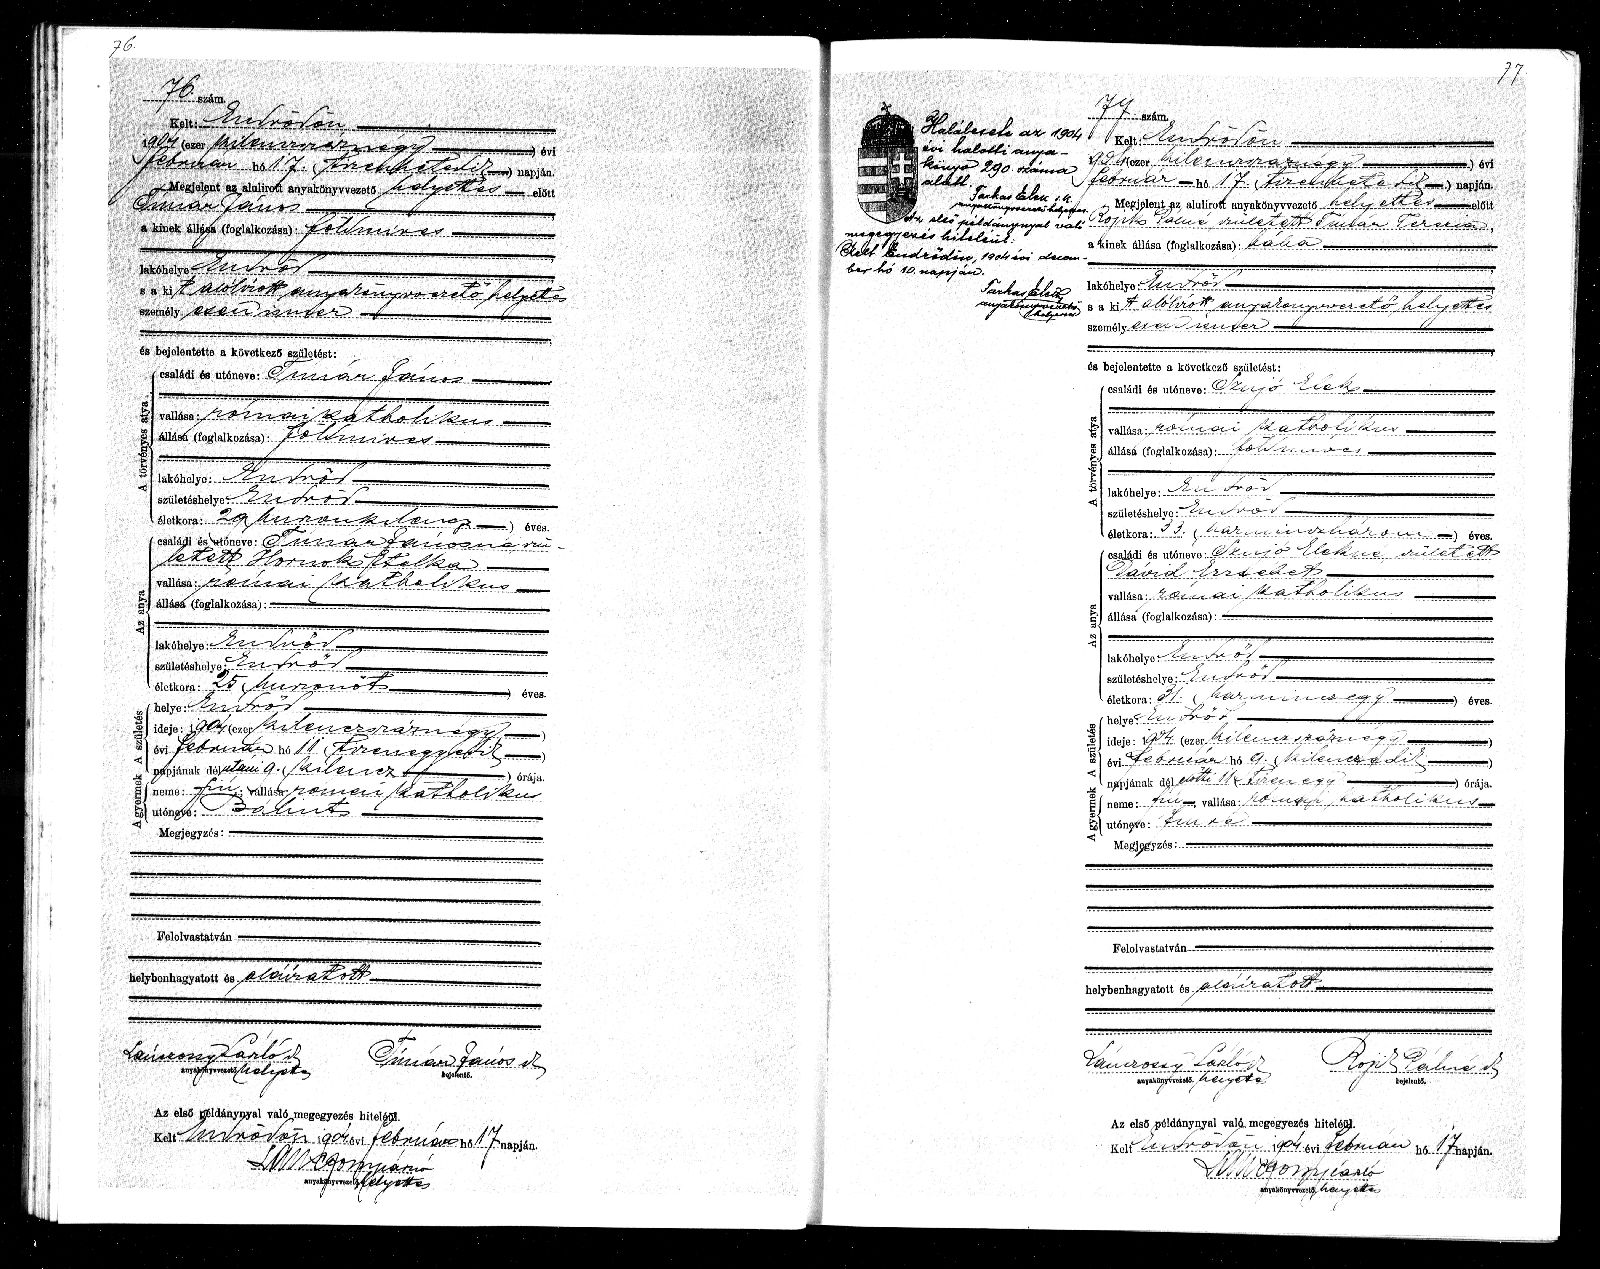 76.
76. szám.
Kelt: Endrődön,
1904 (ezer kilenczszáznégy) évi
február hó 17. (tizenhetedik) napján.
Megjelent az alulirott anyakönyvvezető helyettes előtt
Timár János
a kinek állása (foglalkozása): földmives
lakóhelye Endrőd
s a kit alólirott anyakönyvvezető helyettes
személyesen ismer
és bejelentette a következő születést:
A törvényes atya
családi és utóneve: Timár János
vallása: római katholikus
állása (foglalkozása): földmives
lakóhelye: Endrőd
születéshelye: Endrőd
életkora: 29 huszonkilencz) éves.
Az anya
családi és utóneve: Timár Jánosné szü-
letett Hornok Etelka
vallása: római katholikus
állása (foglalkozása):
lakóhelye: Endrőd
születéshelye: Endrőd
életkora: 25 huszonöt) éves.
A születés
helye: Endrőd
ideje: 1904 (ezer kilenczszáznégy)
évi február hó 11. (tizenegyedik)
napjának délutáni 9. (kilencz) órája.
A gyermek
neme: fiú; vallása római katholikus
utóneve: Bálint
Megjegyzés:
Felolvastatván
helybenhagyatott és aláiratott
László dk
anyakönyvvezető. helyettes
Timár János dk
bejelentő.
Az első példánynyal való megegyezés hiteléül.
Kelt Endrődön, 1904 évi február hó 17 napján.
anyakönyvvezető. helyettes
77
Halálesete az 1904
évi halotti anya-
könyv 290 száma
alatt.
Farkas Elek s.k.
anyakönyvvezető helyettes
Az első példánynyal való
megegyezés hiteléül:
Kelt Endrődön, 1904 évi decem-
ber hó 10. napján.
Farkas Elek
anyakönyvvezető
helyettes
77 szám.
Kelt: Endrődön
1904 (ezer kilenczszáznégy) évi
február hó 17. (tizenhetedik) napján.
Megjelent az alulirott anyakönyvvezető helyettes előtt
Rojik Pálné született Timár Terézia,
a kinek állása (foglalkozása): bába
lakóhelye Endrőd
s a kit alólirott anyakönyvvezető helyettes
személyesen ismer
és bejelentette a következő születést:
A törvényes atya
családi és utóneve: Szujó Elek
vallása: római katholikus
állása (foglalkozása): földmives
lakóhelye: Endrőd
születéshelye: Endrőd
életkora: 33. (harminczhárom) éves.
Az anya
családi és utóneve: Szujó Elekné született
Dávid Erzsébet
vallása: római katholikus
állása (foglalkozása):
lakóhelye: Endrőd
születéshelye: Endrőd
életkora: 31. (harminczegy) éves.
A születés
helye: Endrőd
ideje: 1904 (ezer kilenczszáznégy)
évi február hó 9. (kilenczedik)
napjának délelőtti 11 (tizenegy) órája.
A gyermek
neme: fiú, vallása: római katholikus
utóneve: Imre
Megjegyzés:
Felolvastatván
helybenhagyatott és aláiratott
László dk
anyakönyvvezető. helyettes
Rojik Pálné dk
bejelentő.
Az első példánynyal való megegyezés hiteléül.
Kelt Endrődön 1904 évi február hó 17 napján.
anyakönyvvezető. helyettes